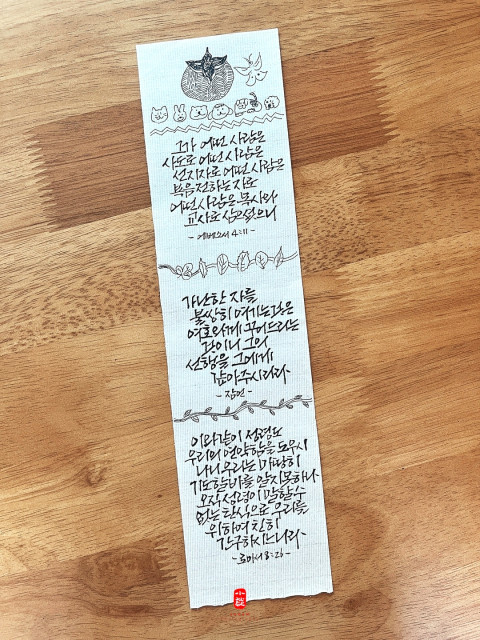 그가 어떤 사람은
사도로 어떤 사람은
선지자로 어떤 사람은
복음 전하는 자로
어떤 사람은 목사와
교사로 삼으셨으니
- 에베소서 4:11 -
가난한 자를
불쌍히 여기는 것은
여호와께 꾸어 드리는
것이니 그의
선행을 그에게
갚아주시리라
- 잠언 -
이와같이 성령도
우리의 연약함을 도우시
나니 우리는 마땅히
기도할 바를 알지 못하나
오직 성령이 말할 수
없는 탄식으로 우리를
위하여 친히
간구하시느니라
- 로마서 8:26 -